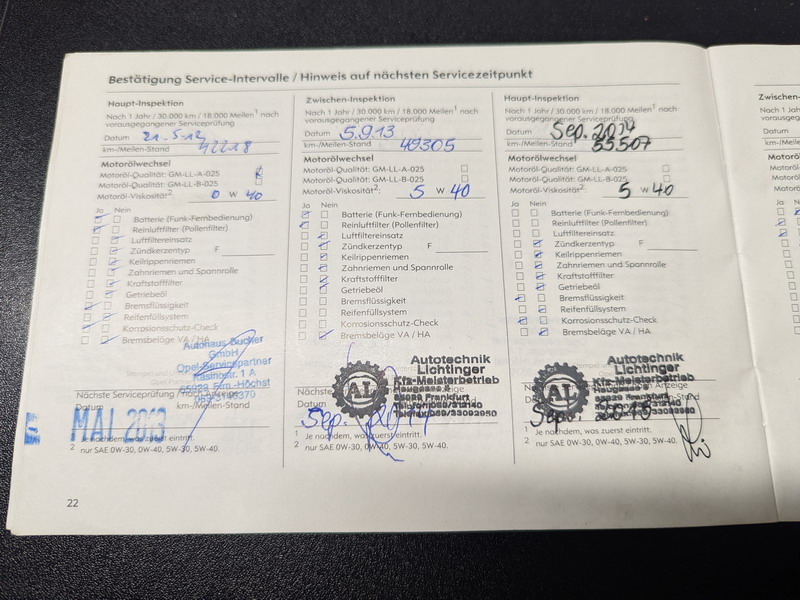 Bestätigung Service-Intervalle / Hinweis auf nächsten Servicezeitpunkt
Haupt-Inspektion
Nach 1 Jahr / 30.000 km / 18.000 Meilen¹ nach
vorausgegangener Serviceprüfung
Datum 21.5.12
km-/Meilen-Stand 42218
Motorölwechsel
Motoröl-Qualität: GM-LL-A-025
Motoröl-Qualität: GM-LL-B-025
Motoröl-Viskosität²: 0 W 40
Ja Nein
Batterie (Funk-Fernbedienung)
Reinluftfilter (Pollenfilter)
Luftfiltereinsatz
Zündkerzentyp F
Keilrippenriemen
Zahnriemen und Spannrolle
Kraftstofffilter
Getriebeöl
Bremsflüssigkeit
Reifenfüllsystem
Korrosionsschutz-Check
Bremsbeläge VA / HA
Autohaus Bucher
GmbH
Opel-Servicepartner
Kasinostr. 1 A
65929 Ffm.-Höchst
Nächste Serviceprüfung / nach Anzeige
Datum km-/Meilen-Stand
MAI 2013
¹ Je nachdem, was zuerst eintritt.
² nur SAE 0W-30, 0W-40, 5W-30, 5W-40.
22
Zwischen-Inspektion
Nach 1 Jahr / 30.000 km / 18.000 Meilen¹ nach
vorausgegangener Serviceprüfung
Datum 5.9.13
km-/Meilen-Stand 49305
Motorölwechsel
Motoröl-Qualität: GM-LL-A-025
Motoröl-Qualität: GM-LL-B-025
Motoröl-Viskosität²: 5 W 40
Ja Nein
Batterie (Funk-Fernbedienung)
Reinluftfilter (Pollenfilter)
Luftfiltereinsatz
Zündkerzentyp F
Keilrippenriemen
Zahnriemen und Spannrolle
Kraftstofffilter
Getriebeöl
Bremsflüssigkeit
Reifenfüllsystem
Korrosionsschutz-Check
Bremsbeläge VA / HA
AL
Autotechnik
Lichtinger
Kfz-Meisterbetrieb
65929 Frankfurt
Nächste
Datum
Sep. 2014
¹ Je nachdem, was zuerst eintritt.
² nur SAE 0W-30, 0W-40, 5W-30, 5W-40.
Haupt-Inspektion
Nach 1 Jahr / 30.000 km / 18.000 Meilen¹ nach
vorausgegangener Serviceprüfung
Datum Sep. 2014
km-/Meilen-Stand 55507
Motorölwechsel
Motoröl-Qualität: GM-LL-A-025
Motoröl-Qualität: GM-LL-B-025
Motoröl-Viskosität²: 5 W 40
Ja Nein
Batterie (Funk-Fernbedienung)
Reinluftfilter (Pollenfilter)
Luftfiltereinsatz
Zündkerzentyp F
Keilrippenriemen
Zahnriemen und Spannrolle
Kraftstofffilter
Getriebeöl
Bremsflüssigkeit
Reifenfüllsystem
Korrosionsschutz-Check
Bremsbeläge VA / HA
AL
Autotechnik
Lichtinger
Kfz-Meisterbetrieb
Sep.
¹ Je nachdem, was zuerst eintritt.
² nur SAE 0W-30, 0W-40, 5W-30, 5W-40.
Zwischen-
Nach 1 Jahr
Datum
Ja